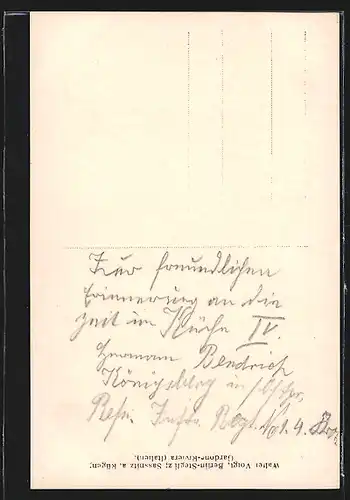 Zur freundlichen
Erinnerung an die
Zeit in Küche IV.
Hermann Bendrich
Königsberg in
Res. Inftr. Regt. No 1. 4.
Walter Voigt, Berlin-Steglitz; Sassnitz a. Rügen;
Gardone-Riviera (Italien).